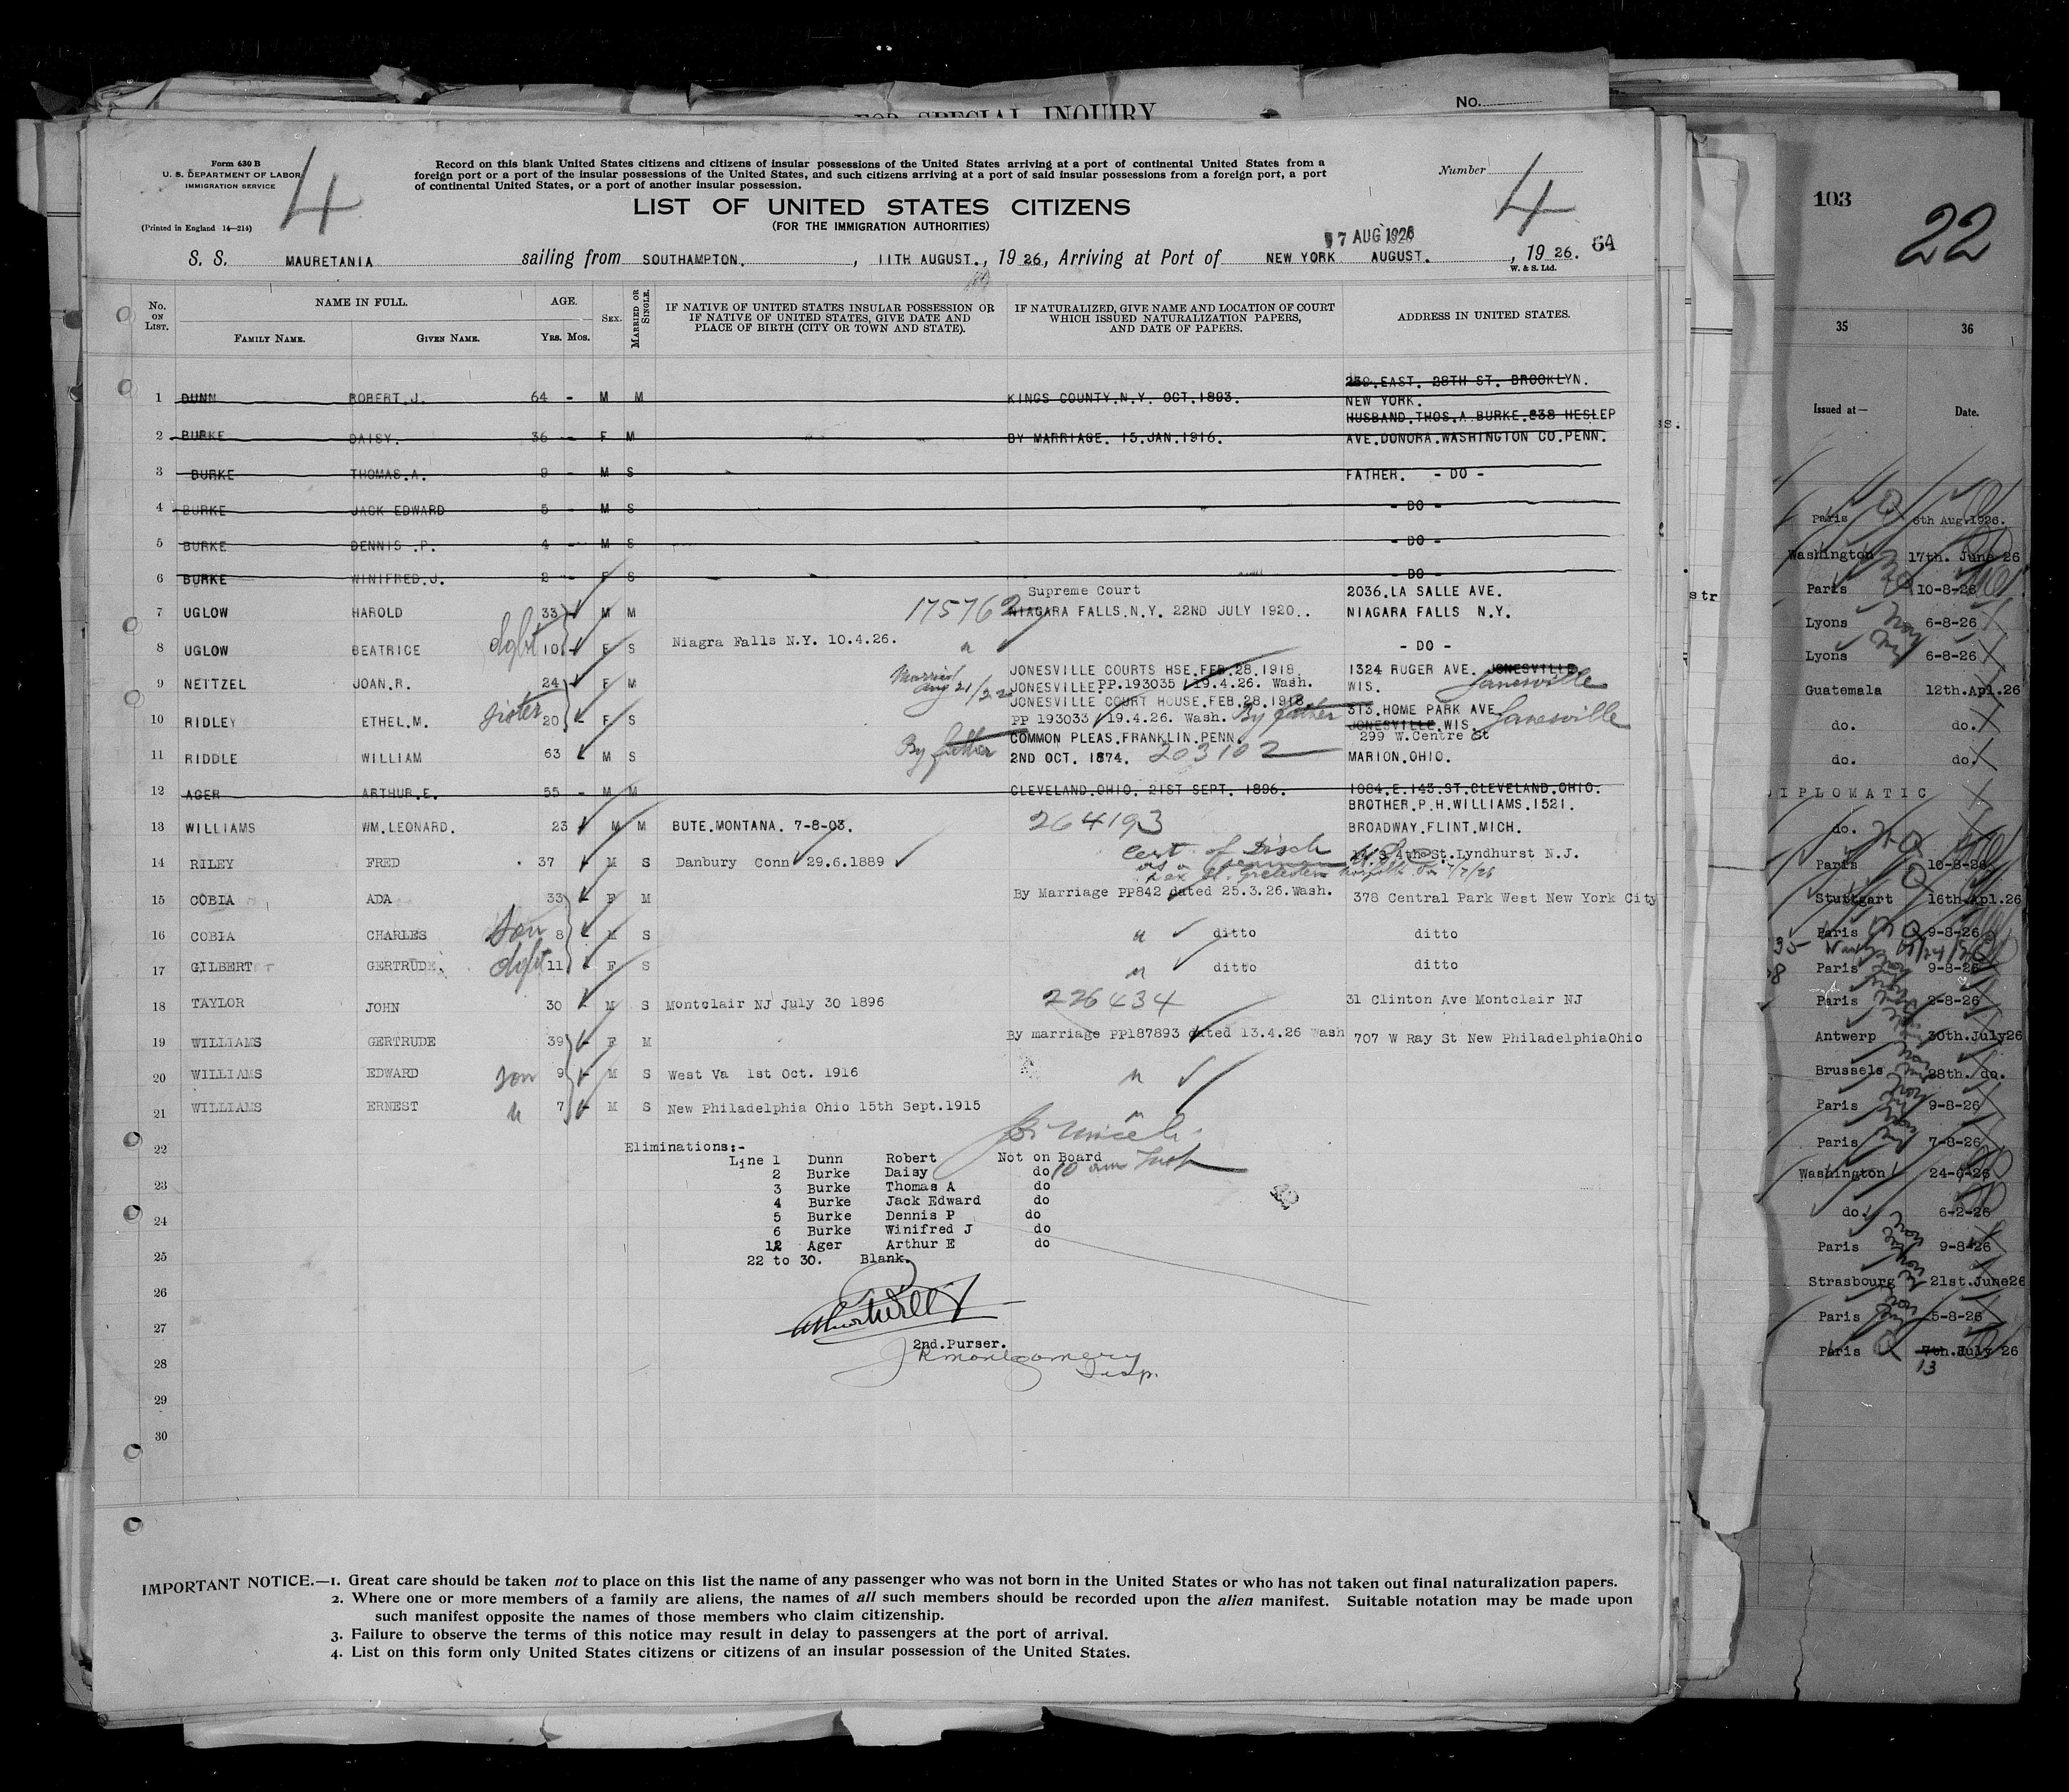 FOR SPECIAL INQUIRY
No.
Form 630 B
U. S. DEPARTMENT OF LABOR
IMMIGRATION SERVICE
(Printed in England 14—214)
4
Record on this blank United States citizens and citizens of insular possessions of the United States arriving at a port of continental United States from a
foreign port or a port of the insular possessions of the United States, and such citizens arriving at a port of said insular possessions from a foreign port, a port
of continental United States, or a port of another insular possession.
Number 4
LIST OF UNITED STATES CITIZENS
(FOR THE IMMIGRATION AUTHORITIES)
17 AUG 1926
S. S. MAURETANIA sailing from SOUTHAMPTON. , 11TH AUGUST. , 19 26, Arriving at Port of NEW YORK AUGUST. , 19 26. 64
W. & S. Ltd.
No. ON LIST. NAME IN FULL. FAMILY NAME. GIVEN NAME. AGE. YRS. MOS. SEX. MARRIED OR SINGLE. IF NATIVE OF UNITED STATES INSULAR POSSESSION OR IF NATIVE OF UNITED STATES, GIVE DATE AND PLACE OF BIRTH (CITY OR TOWN AND STATE). IF NATURALIZED, GIVE NAME AND LOCATION OF COURT WHICH ISSUED NATURALIZATION PAPERS, AND DATE OF PAPERS. ADDRESS IN UNITED STATES.
1 DUNN ROBERT.J. 64 - M M KINGS COUNTY.N.Y. OCT.1893. 239.EAST. 28TH ST. BROOKLYN. NEW YORK.
2 BURKE DAISY. 36 - F M BY MARRIAGE. 15.JAN.1916. HUSBAND.THOS.A.BURKE.838 HESLEP AVE.DONORA.WASHINGTON CO.PENN.
3 BURKE THOMAS.A. 9 - M S FATHER. - DO -
4 BURKE JACK EDWARD 5 - M S - DO -
5 BURKE DENNIS .P. 4 - M S - DO -
6 BURKE WINIFRED.J. 2 - F S - DO -
7 UGLOW HAROLD 33 M M 175762 Supreme Court NIAGARA FALLS.N.Y. 22ND JULY 1920.. 2036.LA SALLE AVE. NIAGARA FALLS N.Y.
8 UGLOW BEATRICE dght 10 F S Niagra Falls N.Y. 10.4.26. " - DO -
9 NEITZEL JOAN.R. 24 F M Married Aug 21/22 JONESVILLE COURTS HSE.FEB.28.1918. JONESVILLE.PP.193035 19.4.26. Wash. 1324 RUGER AVE. JONESVILLE WIS. Janesville
10 RIDLEY ETHEL.M. sister 20 F S JONESVILLE COURT HOUSE.FEB.28.1918. PP 193033 19.4.26. Wash. By father 313.HOME PARK AVE JONESVILLE.WIS. Janesville
11 RIDDLE WILLIAM 63 M S By father COMMON PLEAS.FRANKLIN.PENN. 2ND OCT. 1874. 203102 299 W.Centre St MARION.OHIO.
12 AGER ARTHUR.E. 55 - M M CLEVELAND.OHIO. 21ST SEPT. 1896. 1084.E.143.ST.CLEVELAND.OHIO.
13 WILLIAMS WM.LEONARD. 23 M M BUTE.MONTANA. 7-8-03. 264193 BROTHER.P.H.WILLIAMS.1521. BROADWAY.FLINT.MICH.
14 RILEY FRED 37 M S Danbury Conn 29.6.1889 Cert. of Disch as a seaman 4th St.Lyndhurst N.J.
15 COBIA ADA 33 F M By Marriage PP842 dated 25.3.26.Wash. 378 Central Park West New York City
16 COBIA CHARLES Son 8 M S " ditto ditto
17 GILBERT GERTRUDE. dght 11 F S " ditto ditto
18 TAYLOR JOHN 30 M S Montclair NJ July 30 1896 226434 31 Clinton Ave Montclair NJ
19 WILLIAMS GERTRUDE 39 F M By marriage PP187893 dated 13.4.26 Wash 707 W Ray St New PhiladelphiaOhio
20 WILLIAMS EDWARD son 9 M S West Va 1st Oct. 1916 "
21 WILLIAMS ERNEST " 7 M S New Philadelphia Ohio 15th Sept.1915 "
22 Eliminations:-
Line 1 Dunn Robert Not on Board
2 Burke Daisy do
23 3 Burke Thomas A do
4 Burke Jack Edward do
24 5 Burke Dennis P do
6 Burke Winifred J do
12 Ager Arthur E do
25 22 to 30. Blank.
26
27
2nd.Purser.
28 JRMontgomery
Insp.
29
30
IMPORTANT NOTICE.—1. Great care should be taken not to place on this list the name of any passenger who was not born in the United States or who has not taken out final naturalization papers.
2. Where one or more members of a family are aliens, the names of all such members should be recorded upon the alien manifest. Suitable notation may be made upon
such manifest opposite the names of those members who claim citizenship.
3. Failure to observe the terms of this notice may result in delay to passengers at the port of arrival.
4. List on this form only United States citizens or citizens of an insular possession of the United States.
103
22
35 36
Issued at— Date.
Paris 6th Aug.1926.
Washington 17th. June 26
Paris 10-8-26
Lyons 6-8-26
Lyons 6-8-26
Guatemala 12th.Apl.26
do. do.
do. do.
DIPLOMATIC
do.
Paris 10-8-26
Stuttgart 16th.Apl.26
Paris 9-8-26
Paris 9-8-26
Paris 2-8-26
Antwerp 30th.July26
Brussels 28th. do.
Paris 9-8-26
Paris 7-8-26
Washington 24-6-26
do. 6-2-26
Paris 9-8-26
Strasbourg 21st.June26
Paris 5-8-26
Paris 7th.July 26
13